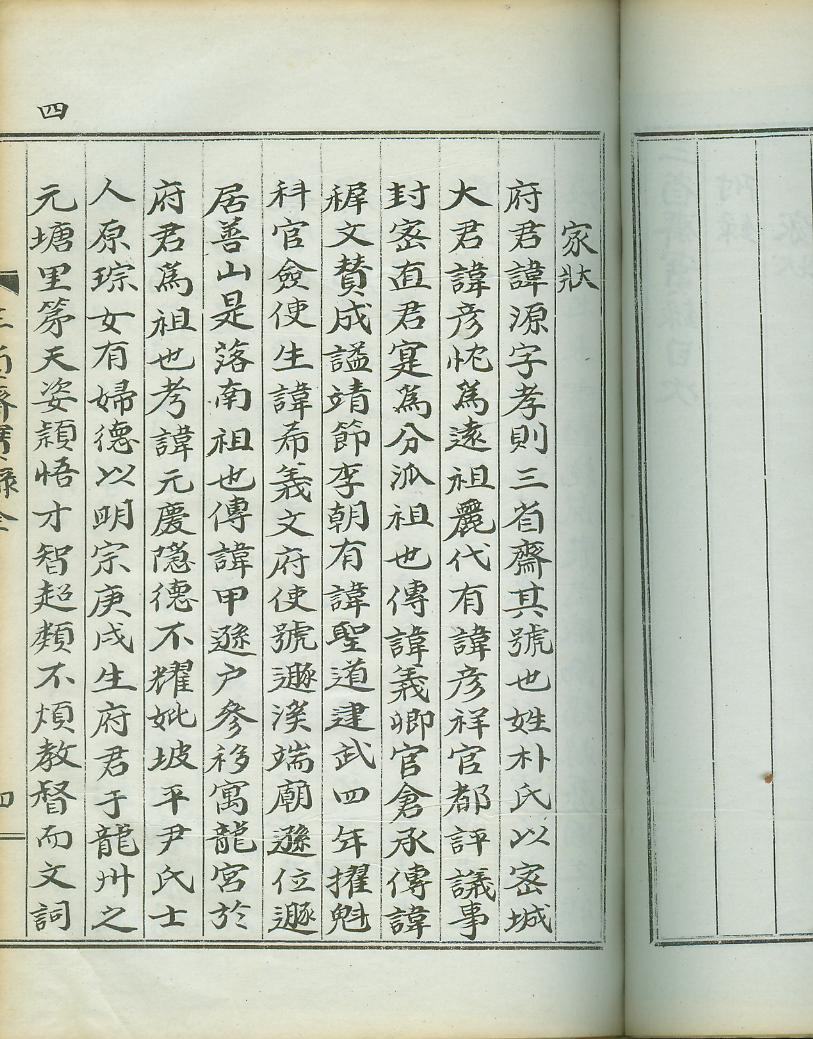 家狀
府君諱源字孝則三省齋其號也姓朴氏以密城
大君諱彦忱爲遠祖麗代有諱彦祥官都評議事
封密直君寔爲分派祖也傳諱義卿官倉丞傳諱
穉文贊成謚靖節李朝有諱聖道建武四年擢魁
科官僉使生諱希義文府使號遯溪端廟遜位遯
居善山是落南祖也傳諱甲遜戶參移寓龍宮於
府君爲祖也考諱元慶隱德不耀妣坡平尹氏士
人原琮女有婦德以明宗庚戌生府君于龍州之
元塘里第天姿穎悟才智超類不煩教督而文詞
四
三省齋實錄全
四